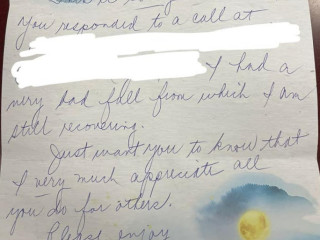 You responded to a call at
I had a
very bad fall from which I am
still recovering.
Just want you to know that
I very much appreciate all
you do for others.
Please enjoy